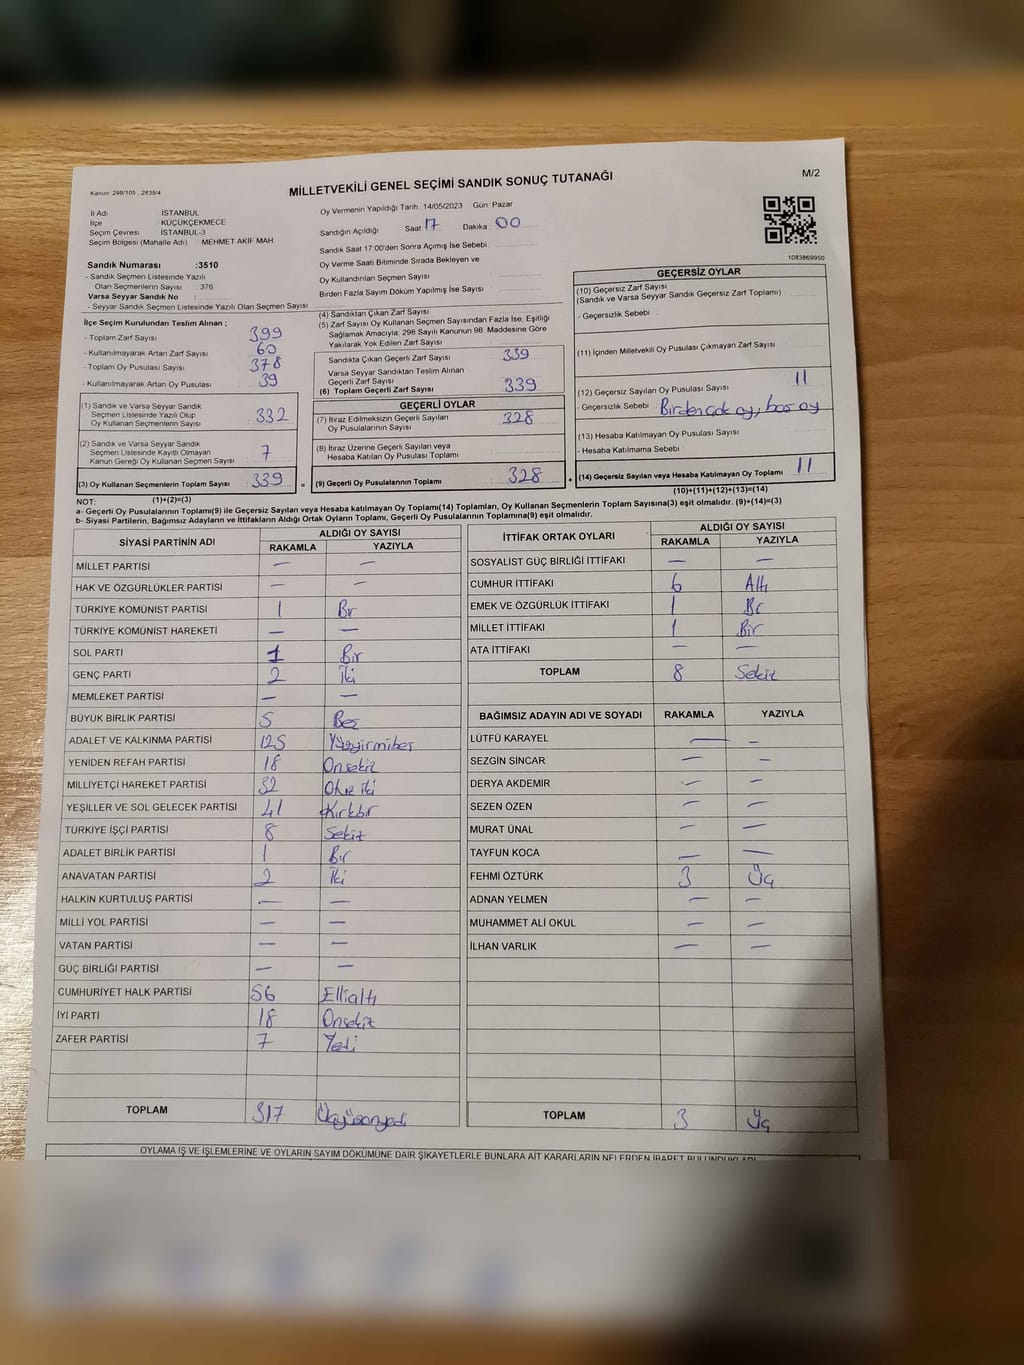 Kanun: 298/105 , 2839/4
MİLLETVEKİLİ GENEL SEÇİMİ SANDIK SONUÇ TUTANAĞI
M/2
İl Adı : İSTANBUL
İlçe : KÜÇÜKÇEKMECE
Seçim Çevresi : İSTANBUL-3
Seçim Bölgesi (Mahalle Adı) : MEHMET AKİF MAH.
Sandık Numarası :3510
- Sandık Seçmen Listesinde Yazılı
Olan Seçmenlerin Sayısı : 376
Varsa Seyyar Sandık No :
- Seyyar Sandık Seçmen Listesinde Yazılı Olan Seçmen Sayısı :
Oy Vermenin Yapıldığı Tarih :14/05/2023 Gün: Pazar
Sandığın Açıldığı Saat 17 Dakika 00
Sandık Saat 17:00'den Sonra Açımış İse Sebebi :
Oy Verme Saati Bitiminde Sırada Bekleyen ve
Oy Kullandırılan Seçmen Sayısı :
Birden Fazla Sayım Döküm Yapılmış İse Sayısı :
1083869950
İlçe Seçim Kurulundan Teslim Alınan ;
- Toplam Zarf Sayısı : 399
- Kullanılmayarak Artan Zarf Sayısı : 60
- Toplam Oy Pusulası Sayısı : 378
- Kullanılmayarak Artan Oy Pusulası : 39
(1) Sandık ve Varsa Seyyar Sandık
Seçmen Listesinde Yazılı Olup
Oy Kullanan Seçmenlerin Sayısı : 332
(2) Sandık ve Varsa Seyyar Sandık
Seçmen Listesinde Kayıtlı Olmayan
Kanun Gereği Oy Kullanan Seçmen Sayısı : 7
(3) Oy Kullanan Seçmenlerin Toplam Sayısı : 339 =
(1)+(2)=(3)
(4) Sandıktan Çıkan Zarf Sayısı :
(5) Zarf Sayısı Oy Kullanan Seçmen Sayısından Fazla İse, Eşitliği
Sağlamak Amacıyla, 298 Sayılı Kanunun 98. Maddesine Göre
Yakılarak Yok Edilen Zarf Sayısı :
Sandıkta Çıkan Geçerli Zarf Sayısı : 339
Varsa Seyyar Sandıktan Teslim Alınan
Geçerli Zarf Sayısı :
(6) Toplam Geçerli Zarf Sayısı : 339
GEÇERLİ OYLAR
(7) İtiraz Edilmeksizin Geçerli Sayılan
Oy Pusulalarının Sayısı : 328
(8) İtiraz Üzerine Geçerli Sayılan veya
Hesaba Katılan Oy Pusulası Toplamı :
(9) Geçerli Oy Pusulalarının Toplamı : 328 +
GEÇERSİZ OYLAR
(10) Geçersiz Zarf Sayısı
(Sandık ve Varsa Seyyar Sandık Geçersiz Zarf Toplamı) :
- Geçersizlik Sebebi :
(11) İçinden Milletvekili Oy Pusulası Çıkmayan Zarf Sayısı :
(12) Geçersiz Sayılan Oy Pusulası Sayısı : 11
- Geçersizlik Sebebi : Birden çok oy, boş oy
(13) Hesaba Katılmayan Oy Pusulası Sayısı :
- Hesaba Katılmama Sebebi :
(14) Geçersiz Sayılan veya Hesaba Katılmayan Oy Toplamı : 11
(10)+(11)+(12)+(13)=(14)
NOT:
a- Geçerli Oy Pusulalarının Toplamı(9) ile Geçersiz Sayılan veya Hesaba katılmayan Oy Toplamı(14) Toplamları, Oy Kullanan Seçmenlerin Toplam Sayısına(3) eşit olmalıdır. (9)+(14)=(3)
b- Siyasi Partilerin, Bağımsız Adayların ve İttifakların Aldığı Ortak Oyların Toplamı, Geçerli Oy Pusulalarının Toplamına(9) eşit olmalıdır.
SİYASİ PARTİNİN ADI ALDIĞI OY SAYISI
RAKAMLA YAZIYLA
MİLLET PARTİSİ — —
HAK VE ÖZGÜRLÜKLER PARTİSİ — —
TÜRKİYE KOMÜNİST PARTİSİ 1 Bir
TÜRKİYE KOMÜNİST HAREKETİ — —
SOL PARTİ 1 Bir
GENÇ PARTİ 2 İki
MEMLEKET PARTİSİ — —
BÜYÜK BİRLİK PARTİSİ 5 Beş
ADALET VE KALKINMA PARTİSİ 125 Yüzyirmibeş
YENİDEN REFAH PARTİSİ 18 Onsekiz
MİLLİYETÇİ HAREKET PARTİSİ 32 Otuz iki
YEŞİLLER VE SOL GELECEK PARTİSİ 41 Kırkbir
TÜRKİYE İŞÇİ PARTİSİ 8 Sekiz
ADALET BİRLİK PARTİSİ 1 Bir
ANAVATAN PARTİSİ 2 İki
HALKIN KURTULUŞ PARTİSİ — —
MİLLİ YOL PARTİSİ — —
VATAN PARTİSİ — —
GÜÇ BİRLİĞİ PARTİSİ — —
CUMHURİYET HALK PARTİSİ 56 Ellialtı
İYİ PARTİ 18 Onsekiz
ZAFER PARTİSİ 7 Yedi
TOPLAM 317 Üçyüzonyedi
İTTİFAK ORTAK OYLARI ALDIĞI OY SAYISI
RAKAMLA YAZIYLA
SOSYALİST GÜÇ BİRLİĞİ İTTİFAKI — —
CUMHUR İTTİFAKI 6 Altı
EMEK VE ÖZGÜRLÜK İTTİFAKI 1 Bir
MİLLET İTTİFAKI 1 Bir
ATA İTTİFAKI — —
TOPLAM 8 Sekiz
BAĞIMSIZ ADAYIN ADI VE SOYADI RAKAMLA YAZIYLA
LÜTFÜ KARAYEL — —
SEZGİN SİNCAR — —
DERYA AKDEMİR — —
SEZEN ÖZEN — —
MURAT ÜNAL — —
TAYFUN KOCA — —
FEHMİ ÖZTÜRK 3 Üç
ADNAN YELMEN — —
MUHAMMET ALİ OKUL — —
İLHAN VARLIK — —
TOPLAM 3 Üç
OYLAMA İŞ VE İŞLEMLERİNE VE OYLARIN SAYIM DÖKÜMÜNE DAİR ŞİKAYETLERLE BUNLARA AİT KARARLARIN NELERDEN İBARET BULUNDUKLARI